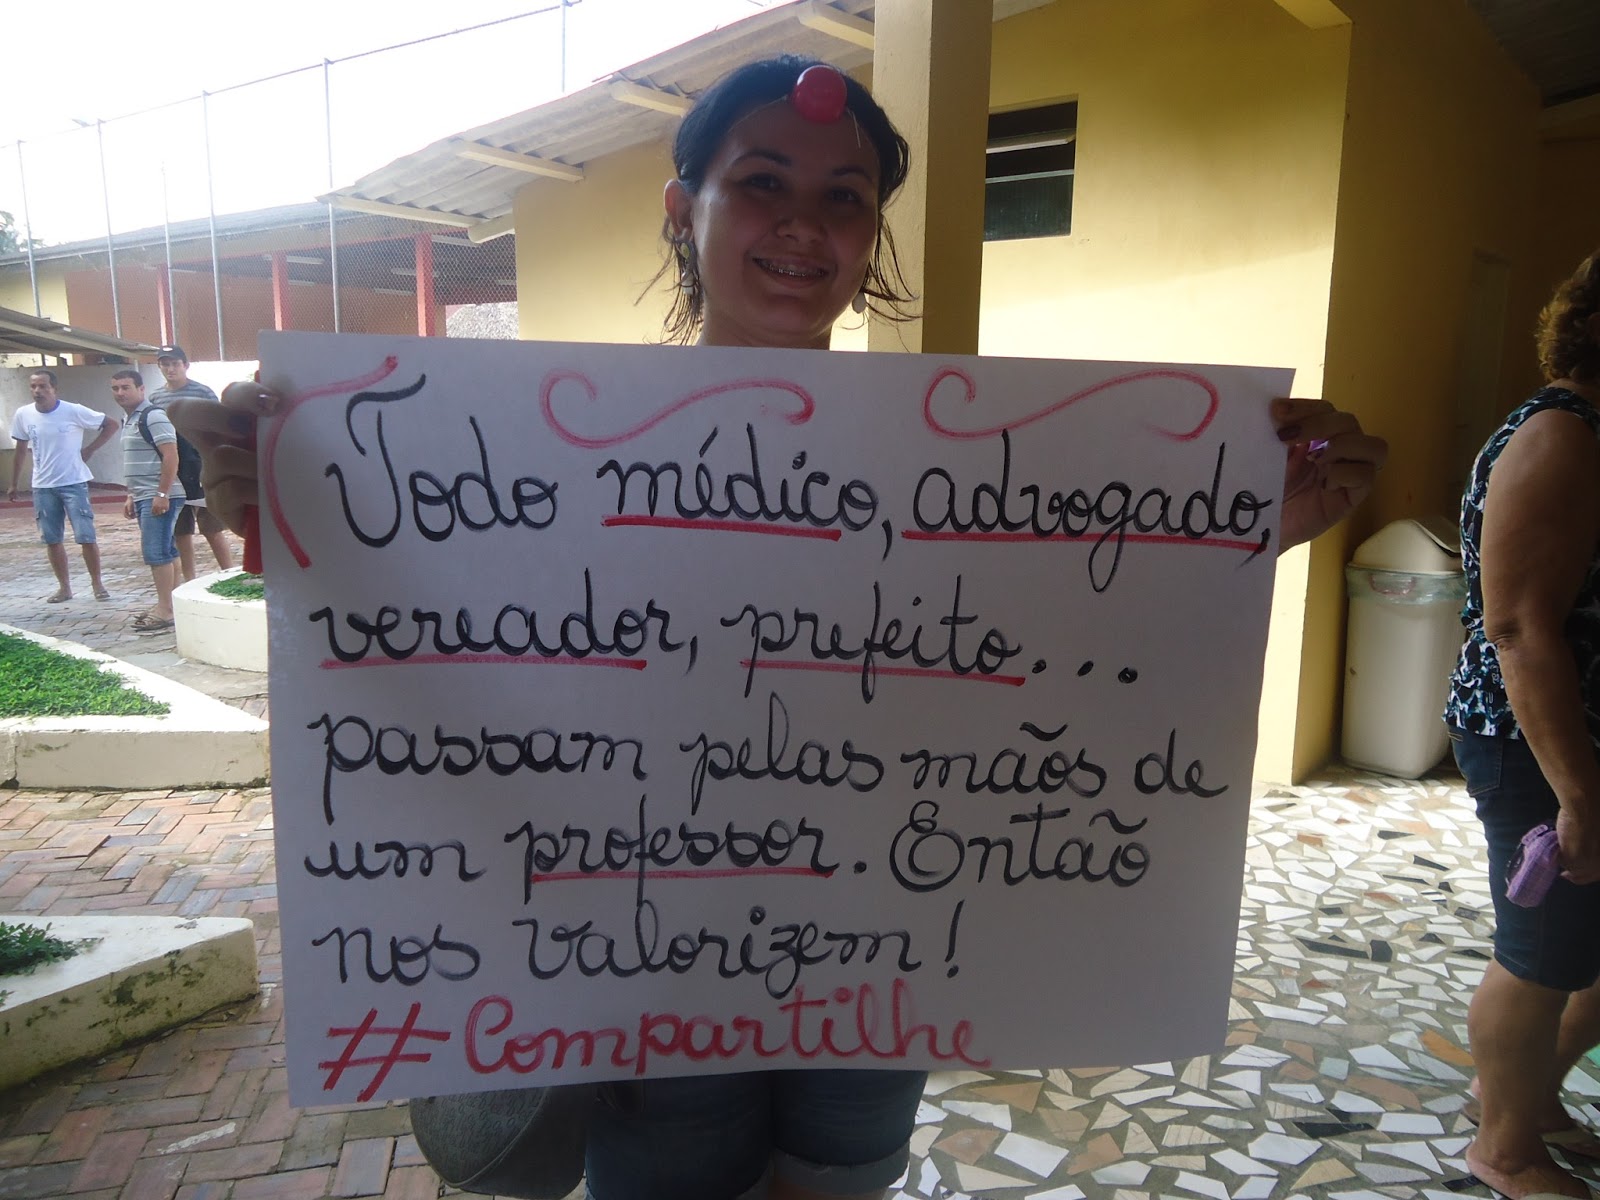 Todo médico, advogado,
vereador, prefeito...
passam pelas mãos de
um professor. Então
nos valorizem!
#Compartilhe